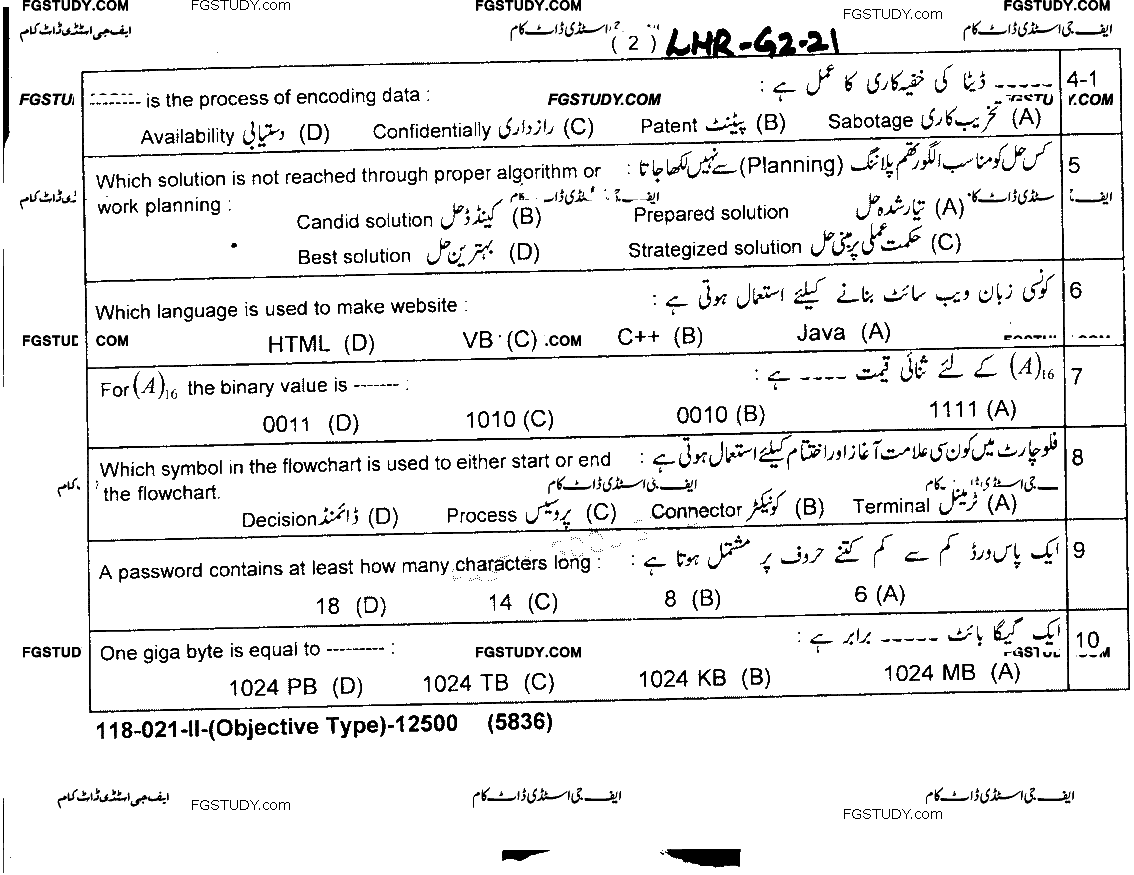 FGSTUDY.COM FGSTUDY.COM FGSTUDY.COM FGSTUDY.COM
ایف جی اسٹڈی ڈاٹ کام جی اسٹڈی ڈاٹ کام ایف جی اسٹڈی ڈاٹ کام
( 2 ) LHR-G2-21
4-1 ----- ڈیٹا کی خفیہ کاری کا عمل ہے :
FGSTU ------- is the process of encoding data : FGSTUDY.COM FGSTU Y.COM
(A) تخریب کاری Sabotage (B) پیٹنٹ Patent (C) رازداری Confidentially (D) دستیابی Availability
5 کس حل کو مناسب الگورتھم پلاننگ (Planning) سے نہیں لکھا جاتا :
Which solution is not reached through proper algorithm or
work planning :
ڈی ڈاٹ کام ایف جی اسٹڈی ڈاٹ کام اسٹڈی ڈاٹ کا ایف
(A) تیار شدہ حل Prepared solution (B) کینڈڈ حل Candid solution
(C) حکمت عملی پر مبنی حل Strategized solution (D) بہترین حل Best solution
6 کونسی زبان ویب سائٹ بنانے کیلئے استعمال ہوتی ہے :
Which language is used to make website :
FGSTUD COM .COM FGSTU .COM
(A) Java (B) C++ (C) VB (D) HTML
7 (A)₁₆ کے لئے ثنائی قیمت ---- ہے :
For (A)₁₆ the binary value is ------- :
(A) 1111 (B) 0010 (C) 1010 (D) 0011
8 فلوچارٹ میں کون سی علامت آغاز اور اختتام کیلئے استعمال ہوتی ہے :
Which symbol in the flowchart is used to either start or end
the flowchart.
کام ایف جی اسٹڈی ڈاٹ کام جی اسٹڈی کام
(A) ٹرمینل Terminal (B) کونیکٹر Connector (C) پروسیس Process (D) ڈائمنڈ Decision
9 ایک پاس ورڈ کم سے کم کتنے حروف پر مشتمل ہوتا ہے :
A password contains at least how many characters long :
(A) 6 (B) 8 (C) 14 (D) 18
10 ایک گیگا بائٹ ----- برابر ہے :
FGSTUD One giga byte is equal to --------- : FGSTUDY.COM FGSTU .COM
(A) 1024 MB (B) 1024 KB (C) 1024 TB (D) 1024 PB
118-021-II-(Objective Type)-12500 (5836)
ایف جی اسٹڈی ڈاٹ کام FGSTUDY.com ایف جی اسٹڈی ڈاٹ کام ایف جی اسٹڈی ڈاٹ کام
FGSTUDY.com